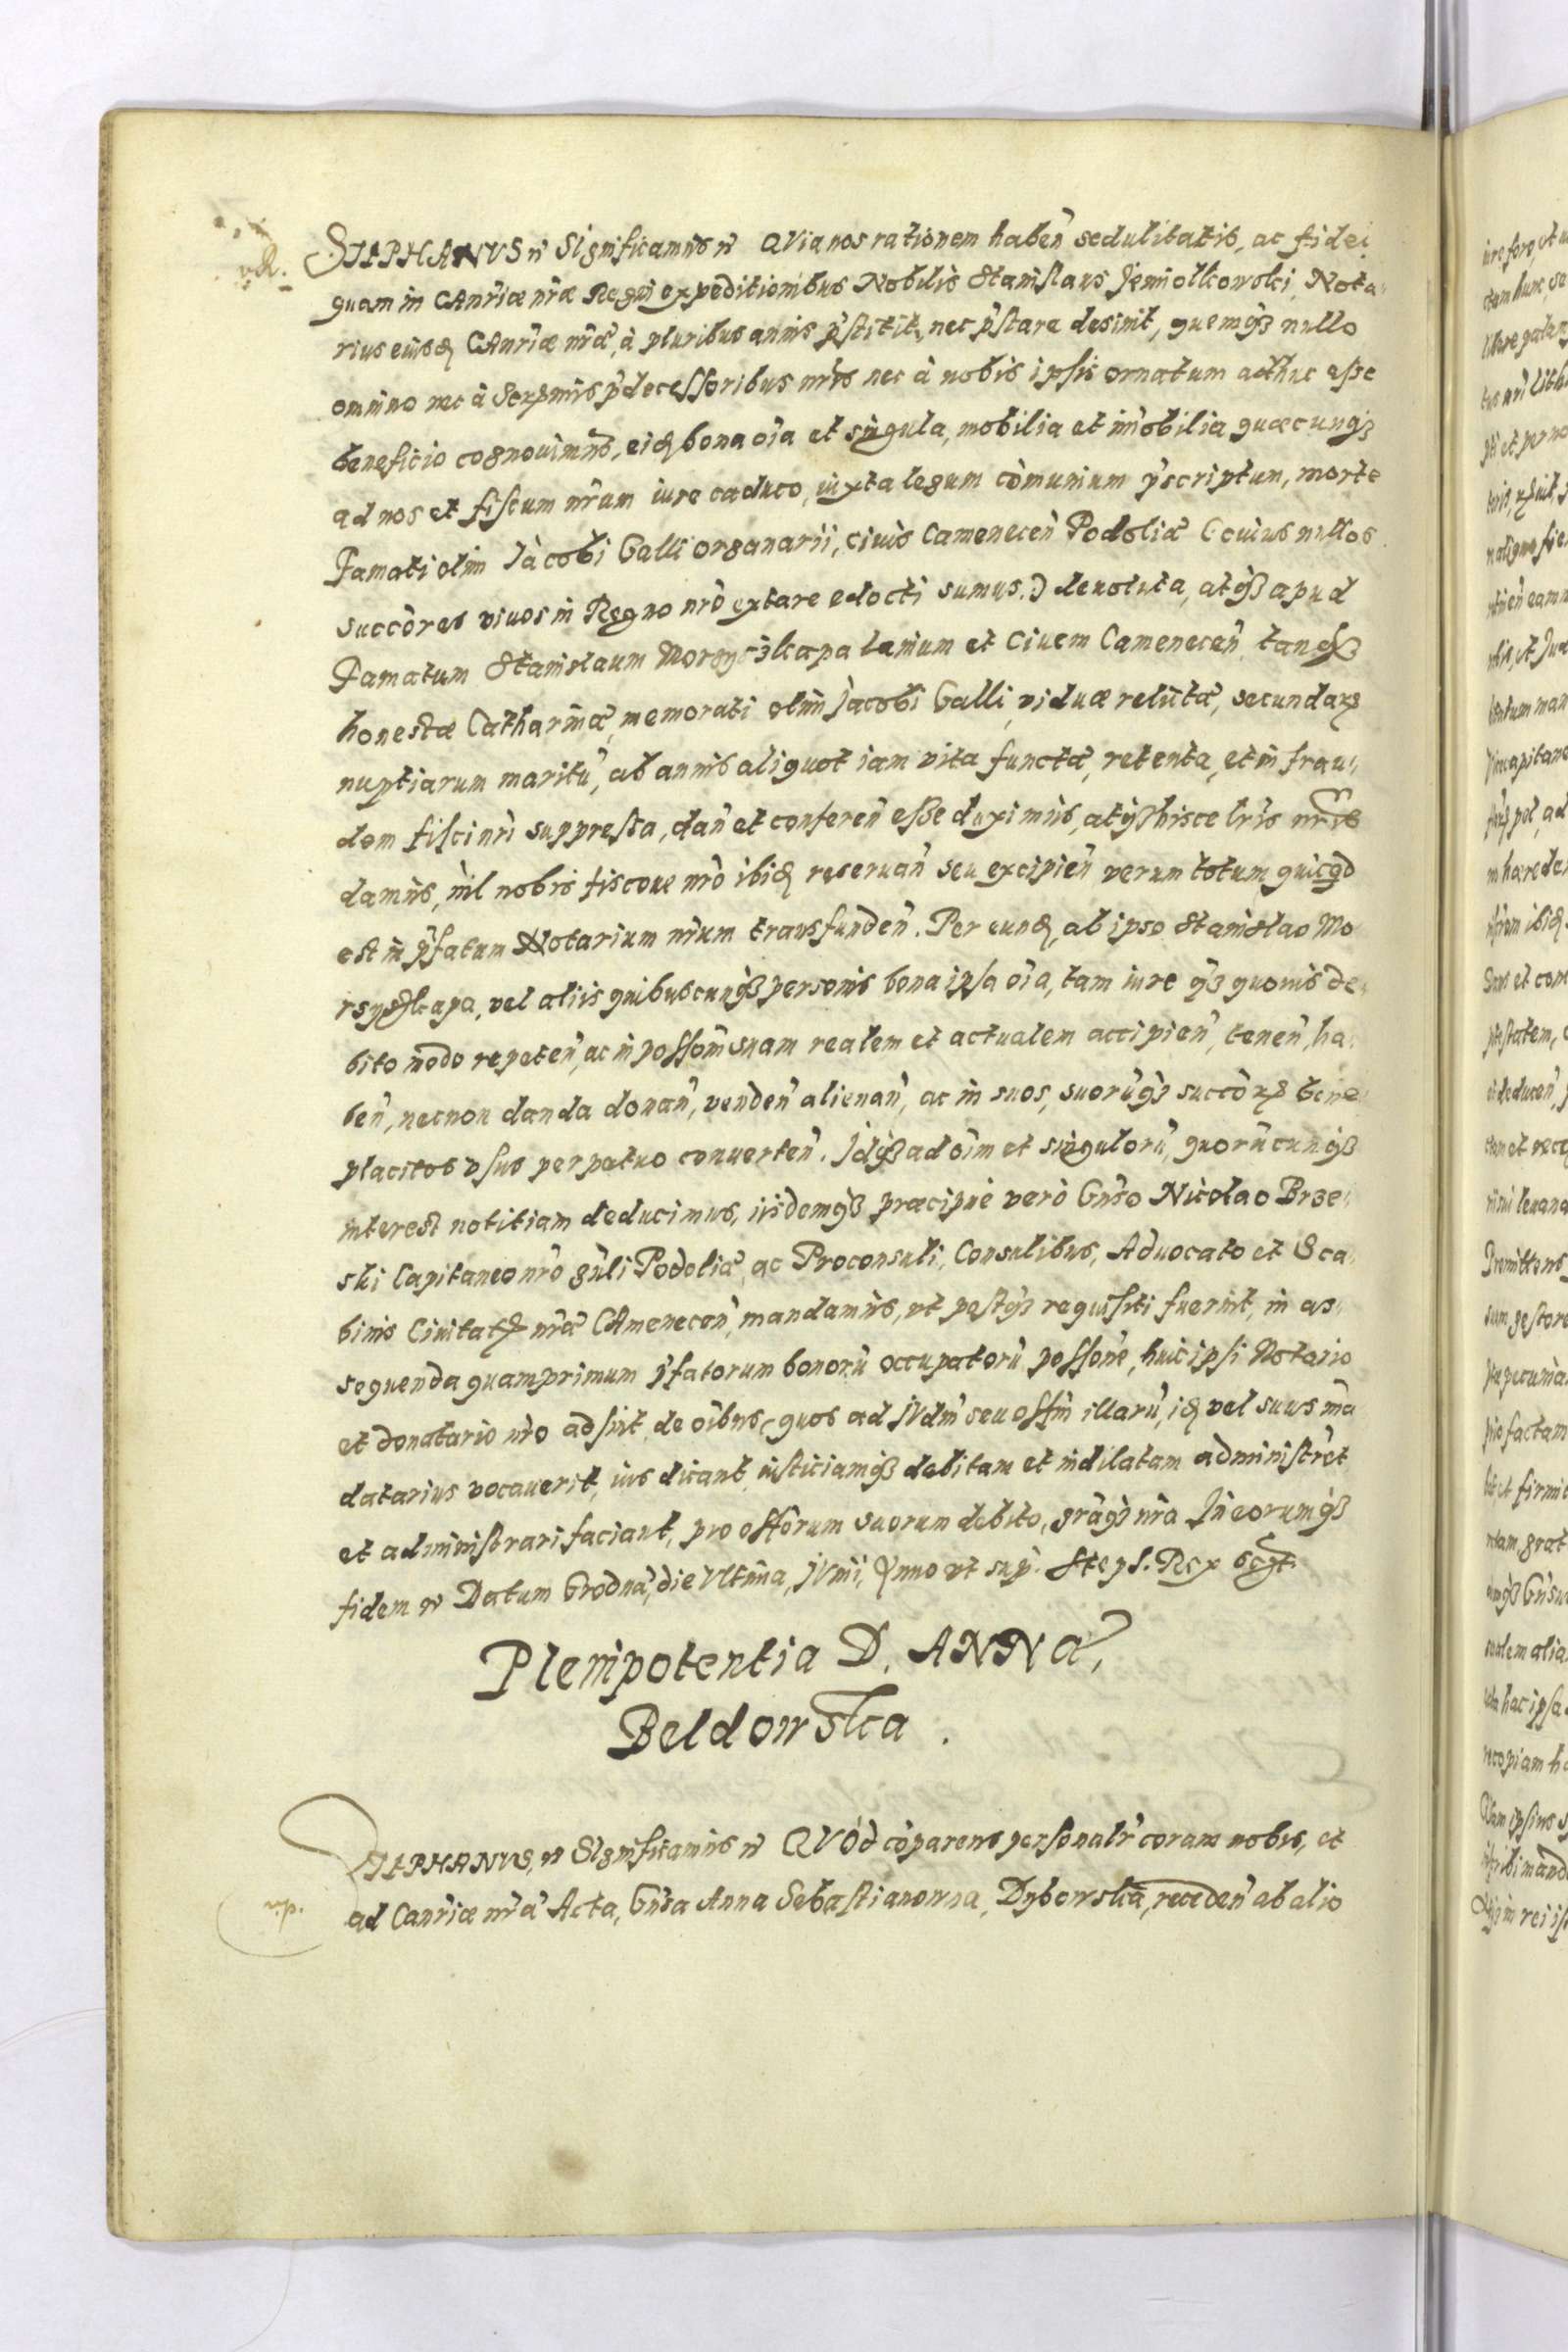 STEPHANVS etc Significamus etc QVia nos rationem haben̄ sedulitatis, ac fidei
v.R.
quam in CAnrīæ nrā̄e Regni expeditionibus Nobilis Stanislaus Jemiolkowski, Nota„
rius eiusdē CAnrīæ nrǣ, à pluribus annis p̄stitit, nec p̄stare desinit, quemq3 nullo
omnino nec à Sermis p̄decessoribus nrīs nec à nobis ipsis ornatum adhuc esse
beneficio cognouimus, eidē bona oīa et singula, mobilia et im̄obilia quæcunq3
ad nos et fiscum nrūm iure caduco, iuxta legum cōmunium p̄scriptum, morte
Famati olim Jacobi Galli organarii, ciuis Camenecen̄ Podoliæ (cuius nullos
succōres viuos in Regno nrō extare edocti sumus.) deuoluta, atq3 apud
Famatum Stanislaum Morsyczkapa lanium et Ciuem Camenecen̄ tanq3
honestæ Catharinæ, memorati olim Jacobi Galli, viduæ relictæ, secundarꝝ
nuptiarum maritū, ab annis aliquot iam vita functæ, retenta, et in frau„
dem fisci nrī suppressa, dan̄ et conferen̄ esse duximus, atq3 hisce lrīs nrīs
damus, nil nobis fiscoue nrō ibidē reseruan̄ seu excipien̄ verum totum quicqd
est in p̄fatum Notarium nrūm transfunden̄. Per eundē, ab ipso Stanislao Mo
rsyczkapa, vel aliis quibuscunq3 personis bona ipsa oīa, tam iure q3 quouis de„
bito modo repeten̄, ac in possom̄ suam realem et actualem accipien̄, tenen̄, ha„
ben̄, necnon danda donan̄, venden̄ alienan̄, ac in suos, suorūq3 succōrꝝ bene
placitos vsus perpetuo conuerten̄. Jdq3 ad oīm et singulorū, quorūcunq3
interest notitiam deducimus, iisdemq3 præcipuè verò Gnso Nicolao Brze„
ski Capitaneo nrō gnli Podoliæ, ac Proconsuli, Consulibus, Aduocato et Sca„
binis Ciuitatꝭ nrǣ CAmenecen̄, mandamus, vt postq3 requisiti fuerint, in as„
sequenda quamprimum p̄fatorum bonorū occupatorū possone, huic ipsi Notario
et donatario nrō adsint, de oībus, quos ad JVdm̄ seu offm̄ illarū, idē vel suus mā
datarius vocauerit, ius dicant, iusticiamq3 debitam et indilatam administret
et administrari faciant, pro offōrum suorum debito, grāq3 nrā Jn eorumq3
fidem etc Datum Grodnæ, die Vltima, JVnii, Anno vt sup. Steps. Rex sszt
Plenipotentia D. ANNÆ,
Beldowska.
STEPHANVS, etc SIgnificamus etc QVOd cōparens personalr̄ coram nobis, et
v.p.
ad Canrīæ nrǣ Acta, Gnsa Anna Sebastianowna, Dybowska, receden̄ ab alio